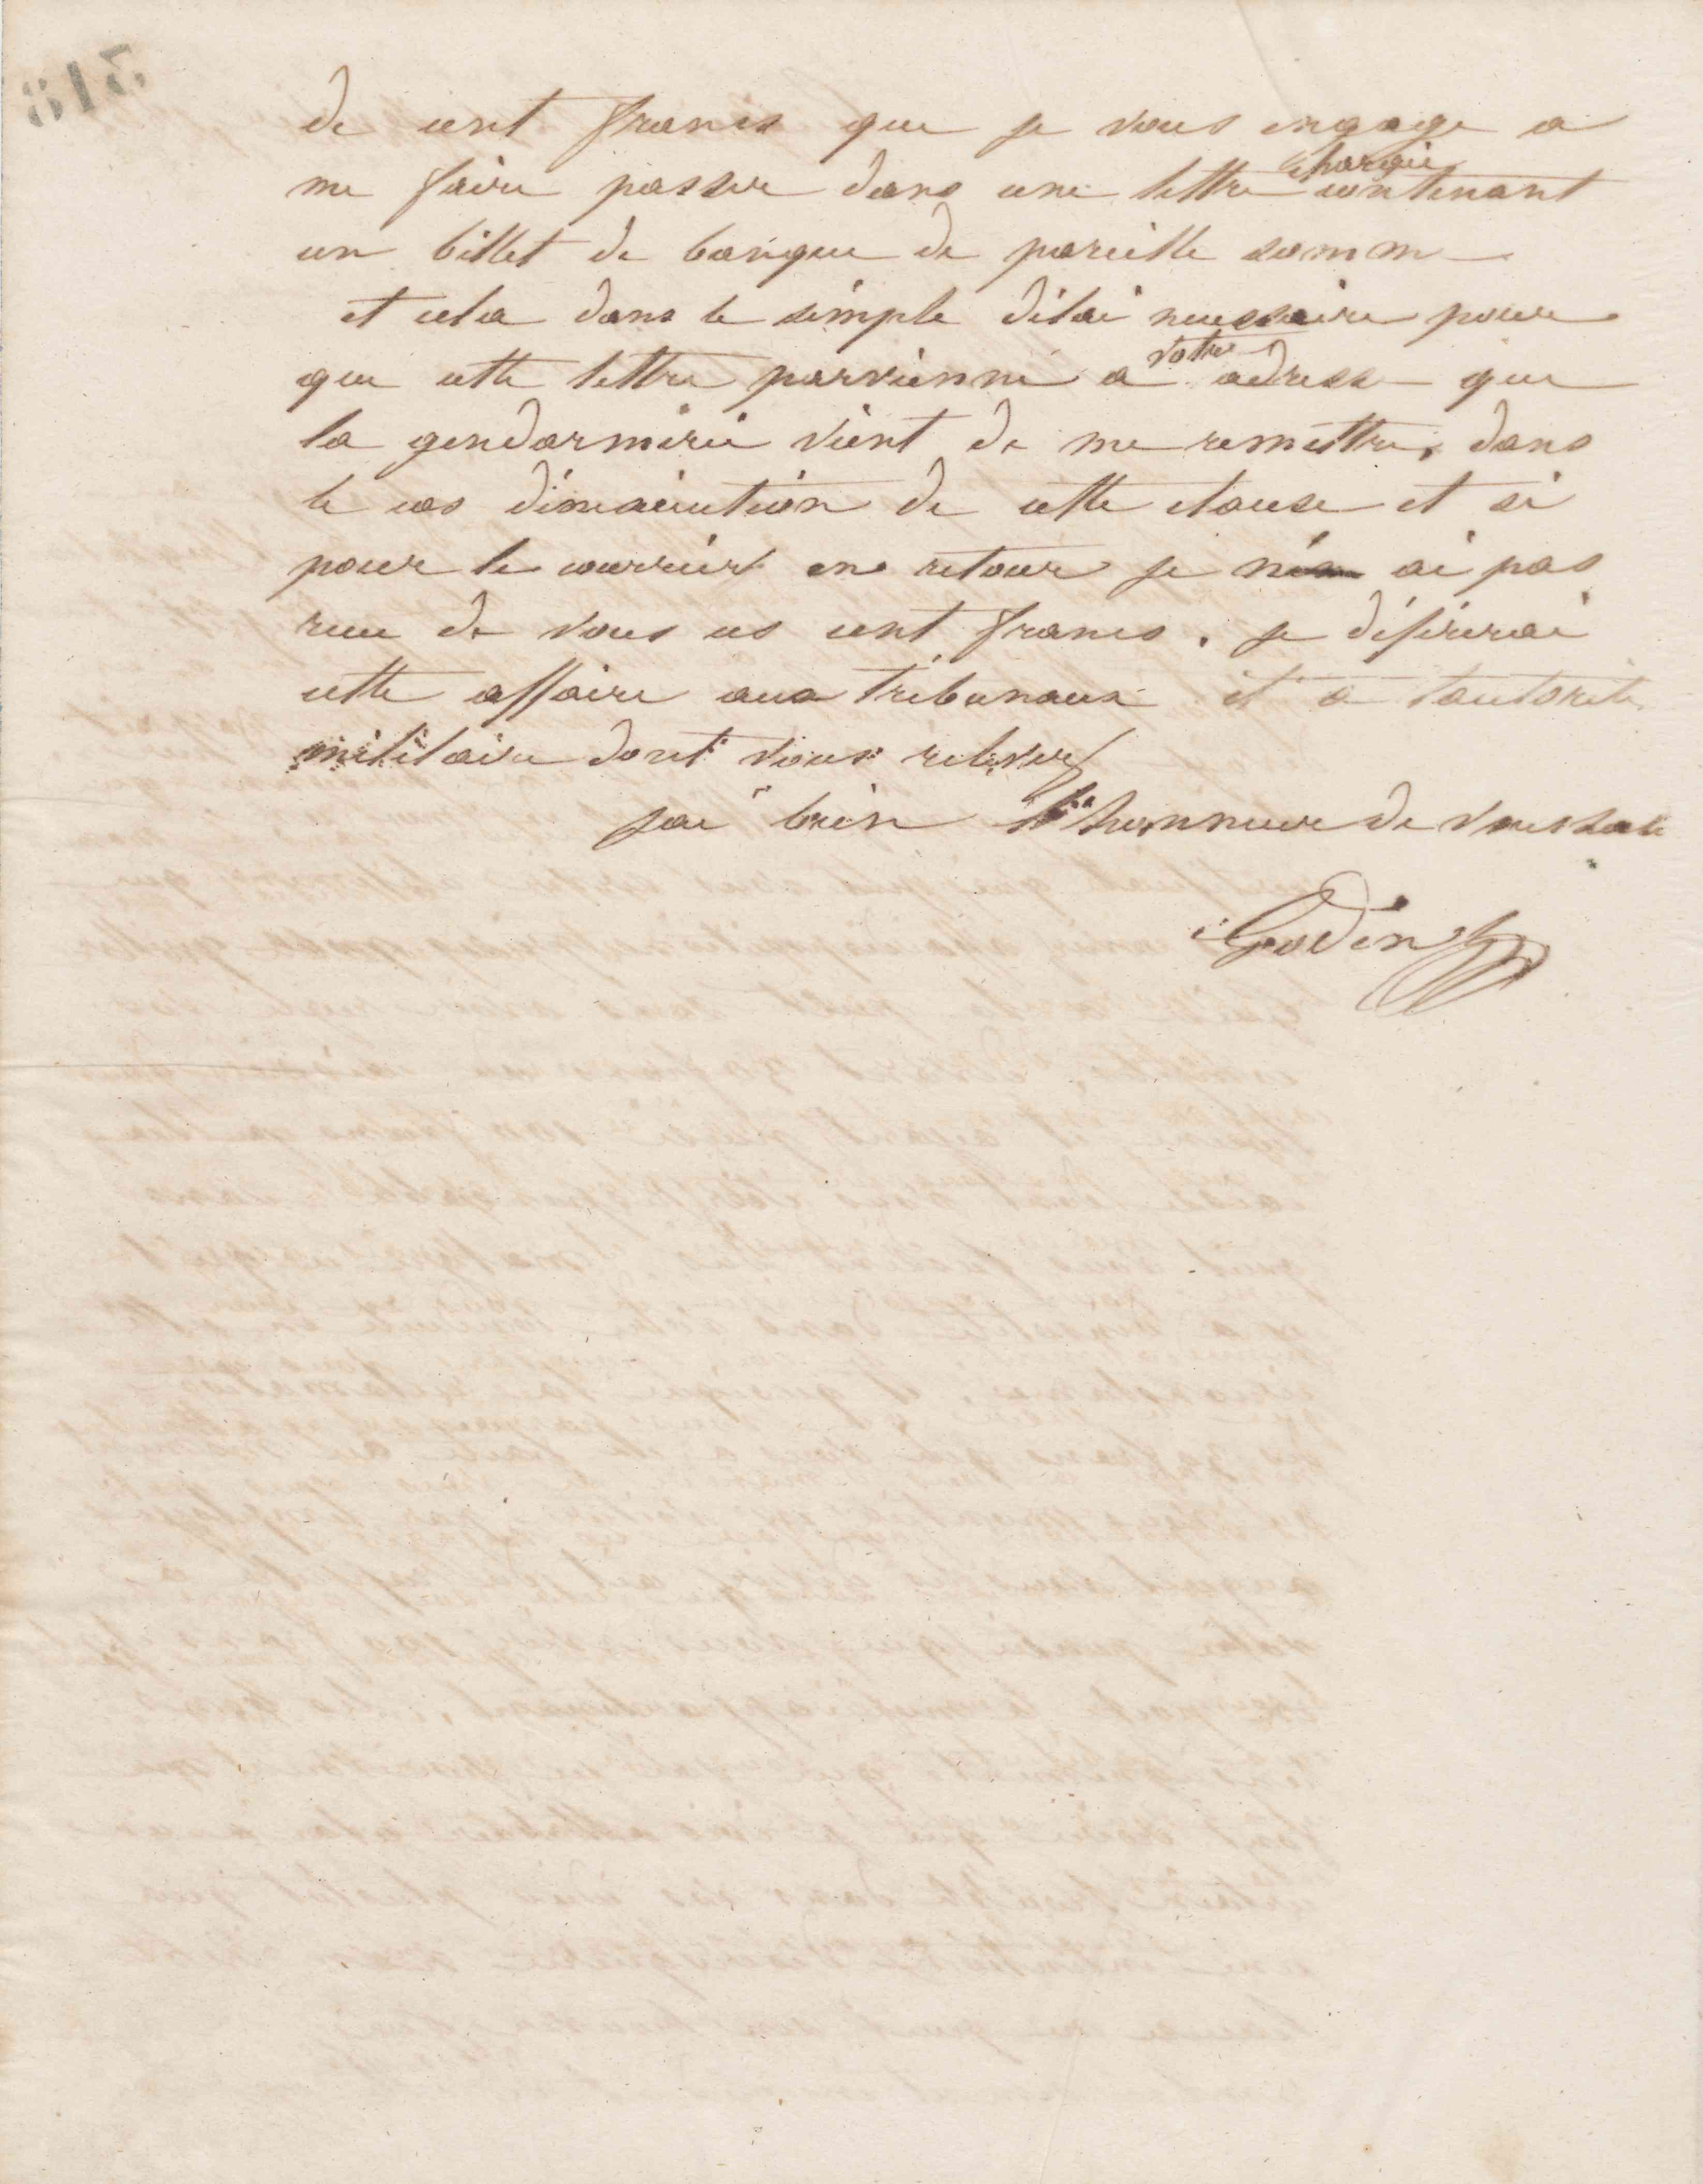 de cent francs que je vous engage a
me faire passer dans une lettre chargée contenant
un billet de banque de pareille somme
et cela dans le simple délai necessaire pour
que cette lettre parvienne a votre adresse que
la gendarmerie vient de me remettre, dans
le cas d'inexécution de cette clause et si
pour le courrier en retour je n'en ai pas
recu de vous ces cent francs. je déférerai
cette affaire aux tribunaux et a l'autorité
militaire dont vous relevez
jai bien l'honneur de vous saluer
Godin